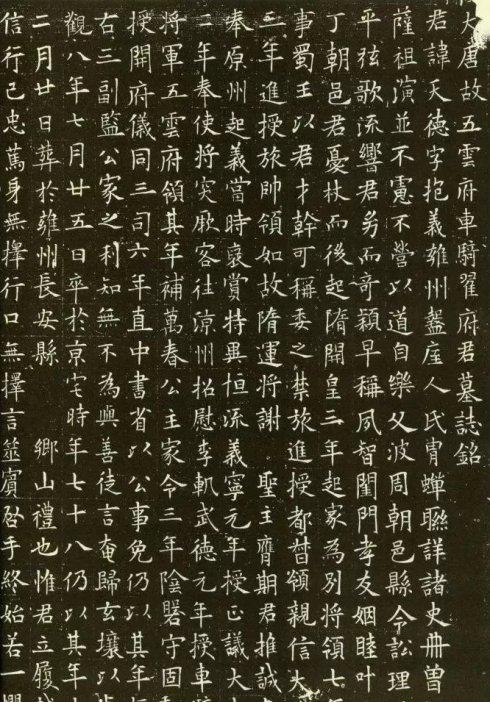 大唐故五雲府車騎翟府君墓誌銘
君諱天德字抱義雍州盩厔人氏胄蟬聯詳諸史冊曾
薩祖演並不憲不營以道自樂父波周朝邑縣令訟理
平弦歌流響君弱而奇穎早稱夙智閨門孝友姻睦叶
丁朝邑君憂杖而後起隋開皇三年起家為別將領七
事蜀王以君才幹可稱委之禁旅進授都督領親信大
三年進授旅帥領如故隋運將謝聖主膺期君推誠
奉原州起義當時褒賞特異恒流義寧元年授正議大
二年奉使將突厥客往涼州招慰李軌武德元年授車
將軍五雲府領其年補萬春公主家令三年陰盤守固
授開府儀同三司六年直中書省以公事免仍以其年
右三副監公家之利知無不為與善徒言奄歸玄壤以
觀八年七月廿五日卒於京宅時年七十八仍以其年
二月廿日葬於雍州長安縣鄉山禮也惟君立履
信行己忠篤身無擇行口無擇言筮賓啟手終始若一